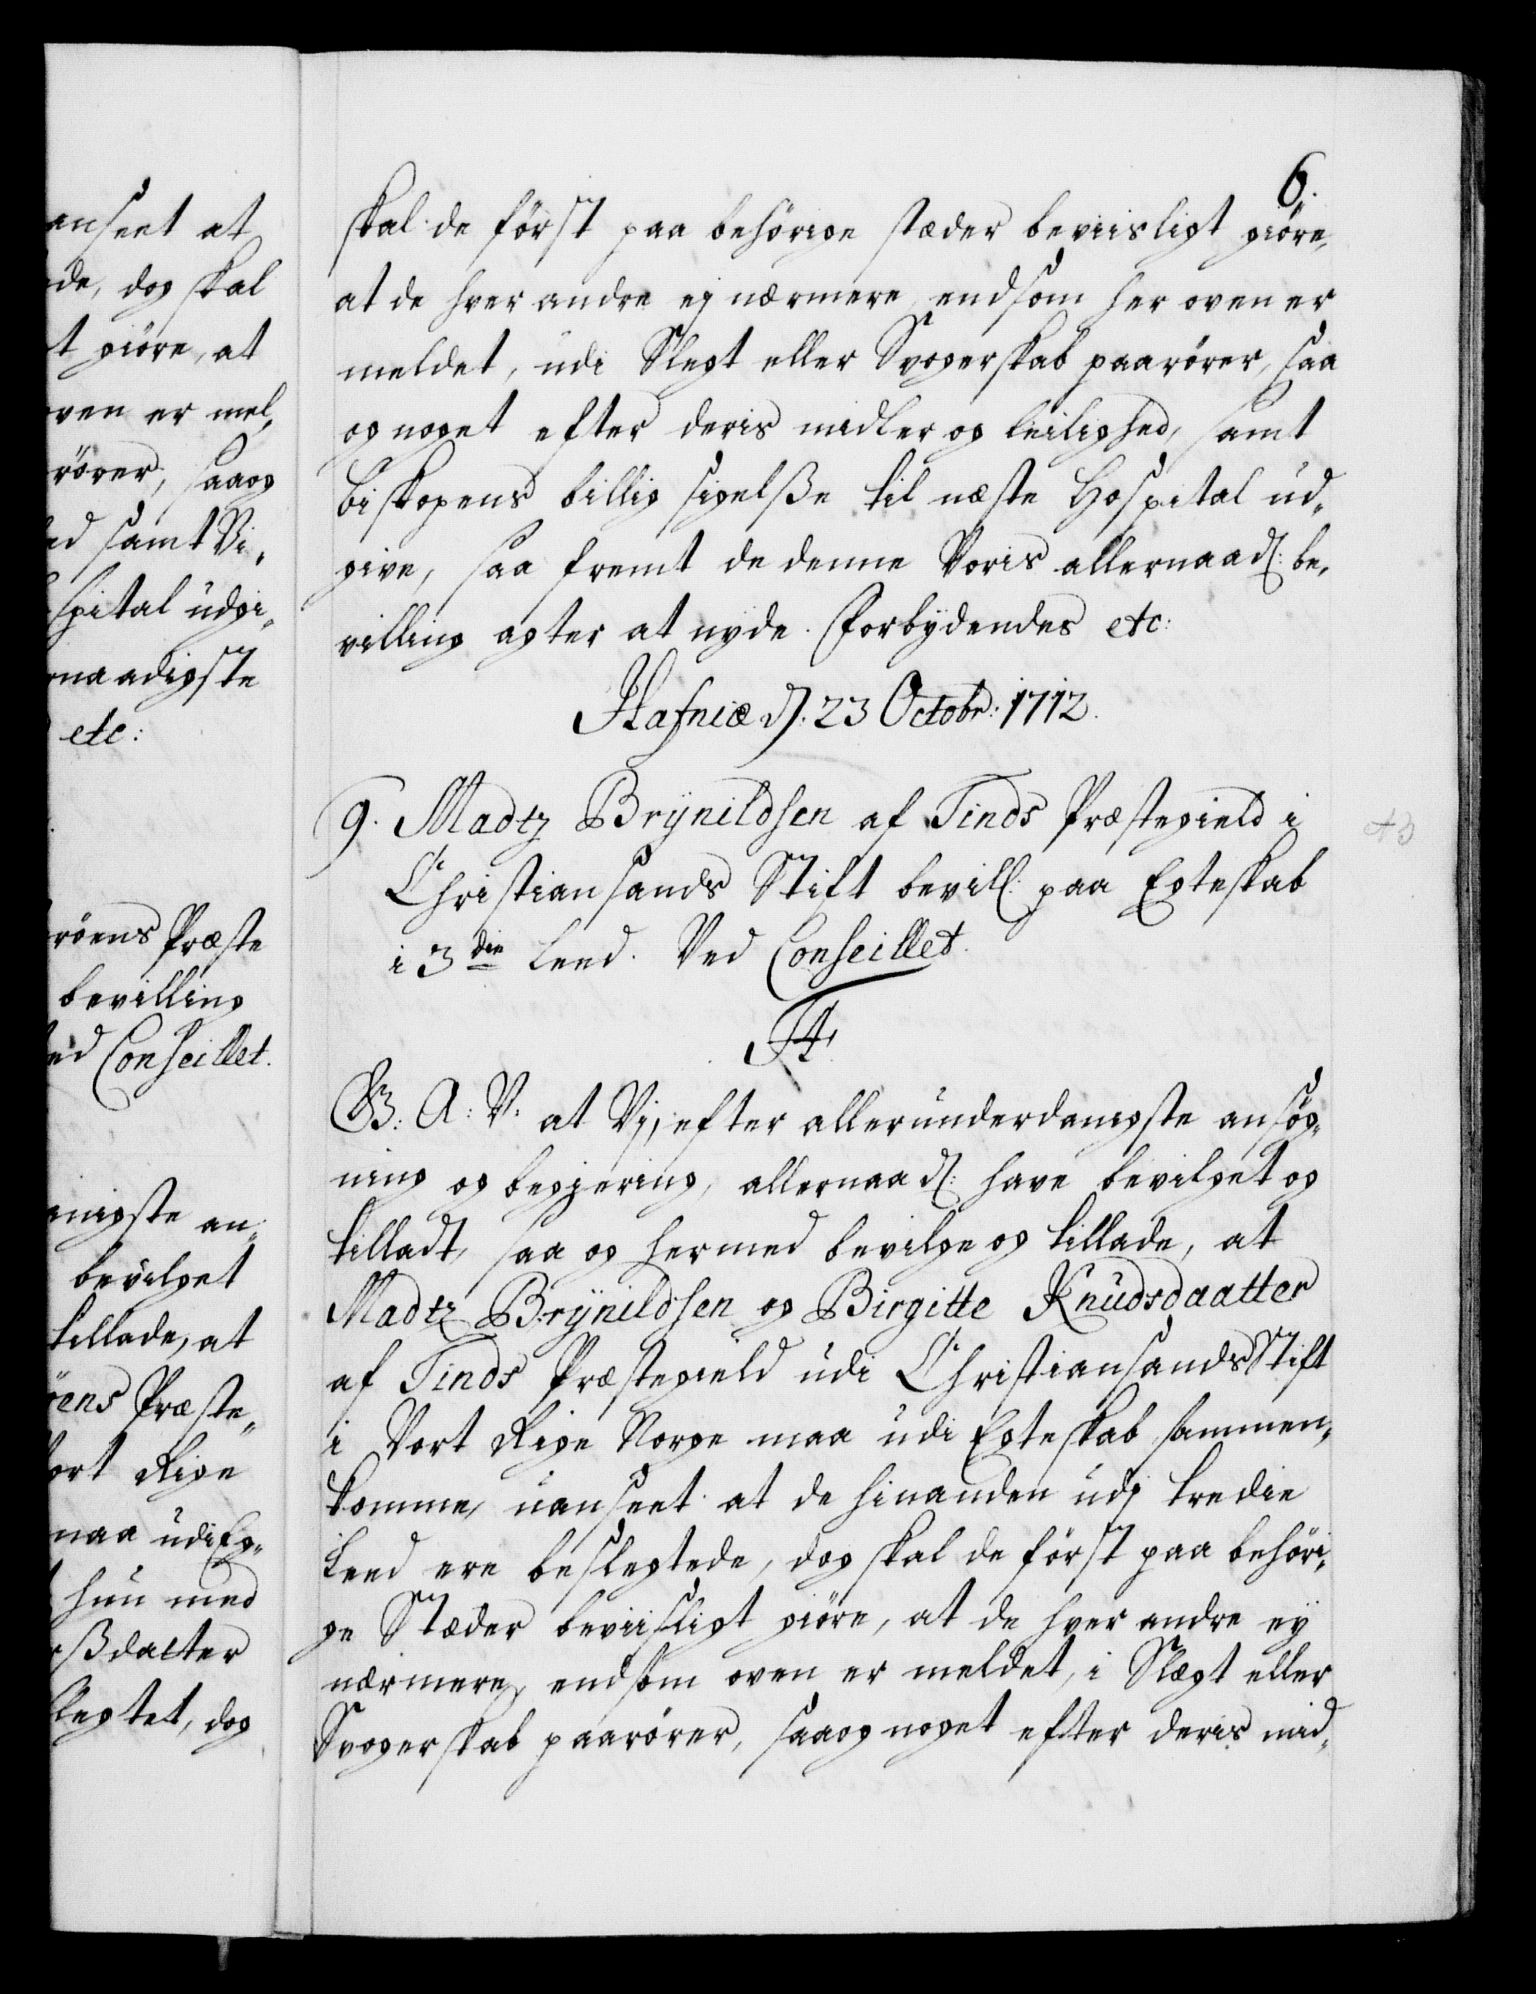 anseet at
de, dog skal
t giöre, at
oven er mel,
rörer, saaog
ed samt Bi„
spital udgi„
naadigste
etc:
röens Præste
bevilling
ved Conseillet.
nigste an„
bevilget
tillade, at
öens Præste„
ort Rige
maa udi Eg„
hun med
rßdatter
slegtet, dog
6.
skal de först paa behörige stæder beviisligt giöre,
at de hver andre ej nærmere, endsom her oven er
meldet, udi Slegt eller Svogerskab paarörer, saa
og noget efter deris midler og leilighed, samt
biskopens billig sigelße til næste Hospital ud„
give, saa fremt de denne Voris allernaad: be„
villing agter at nyde. Forbydendes etc:
Hafniæ d. 23 Octobr: 1712.
9. Madtz Brÿnildsen af Tinds Præstegield i
Christiansands Stift bevill: paa Egteskab
i 3die Leed. Ved Conseillet.
F4.
G: A: V: at Vj, efter allerunderdanigste ansög„
ning og begiering, allernaad: have bevilget og
tilladt, saa og hermed bevilge og tillade, at
Madtz Brÿnildsen og Birgitte Knudsdaatter
af Tinds Præstegield udi Christiansands Stift
i Vort Rige Norge maa udi Egteskab sammen„
komme, uanseet at de hinanden udj tredie
Leed ere beslegtede, dog skal de först paa behöri„
ge Stæder beviisligt giöre, at de hver andre eÿ
nærmere, endsom oven er meldet, i Slægt eller
Svogerskab paarörer, saaog noget efter deris mid„